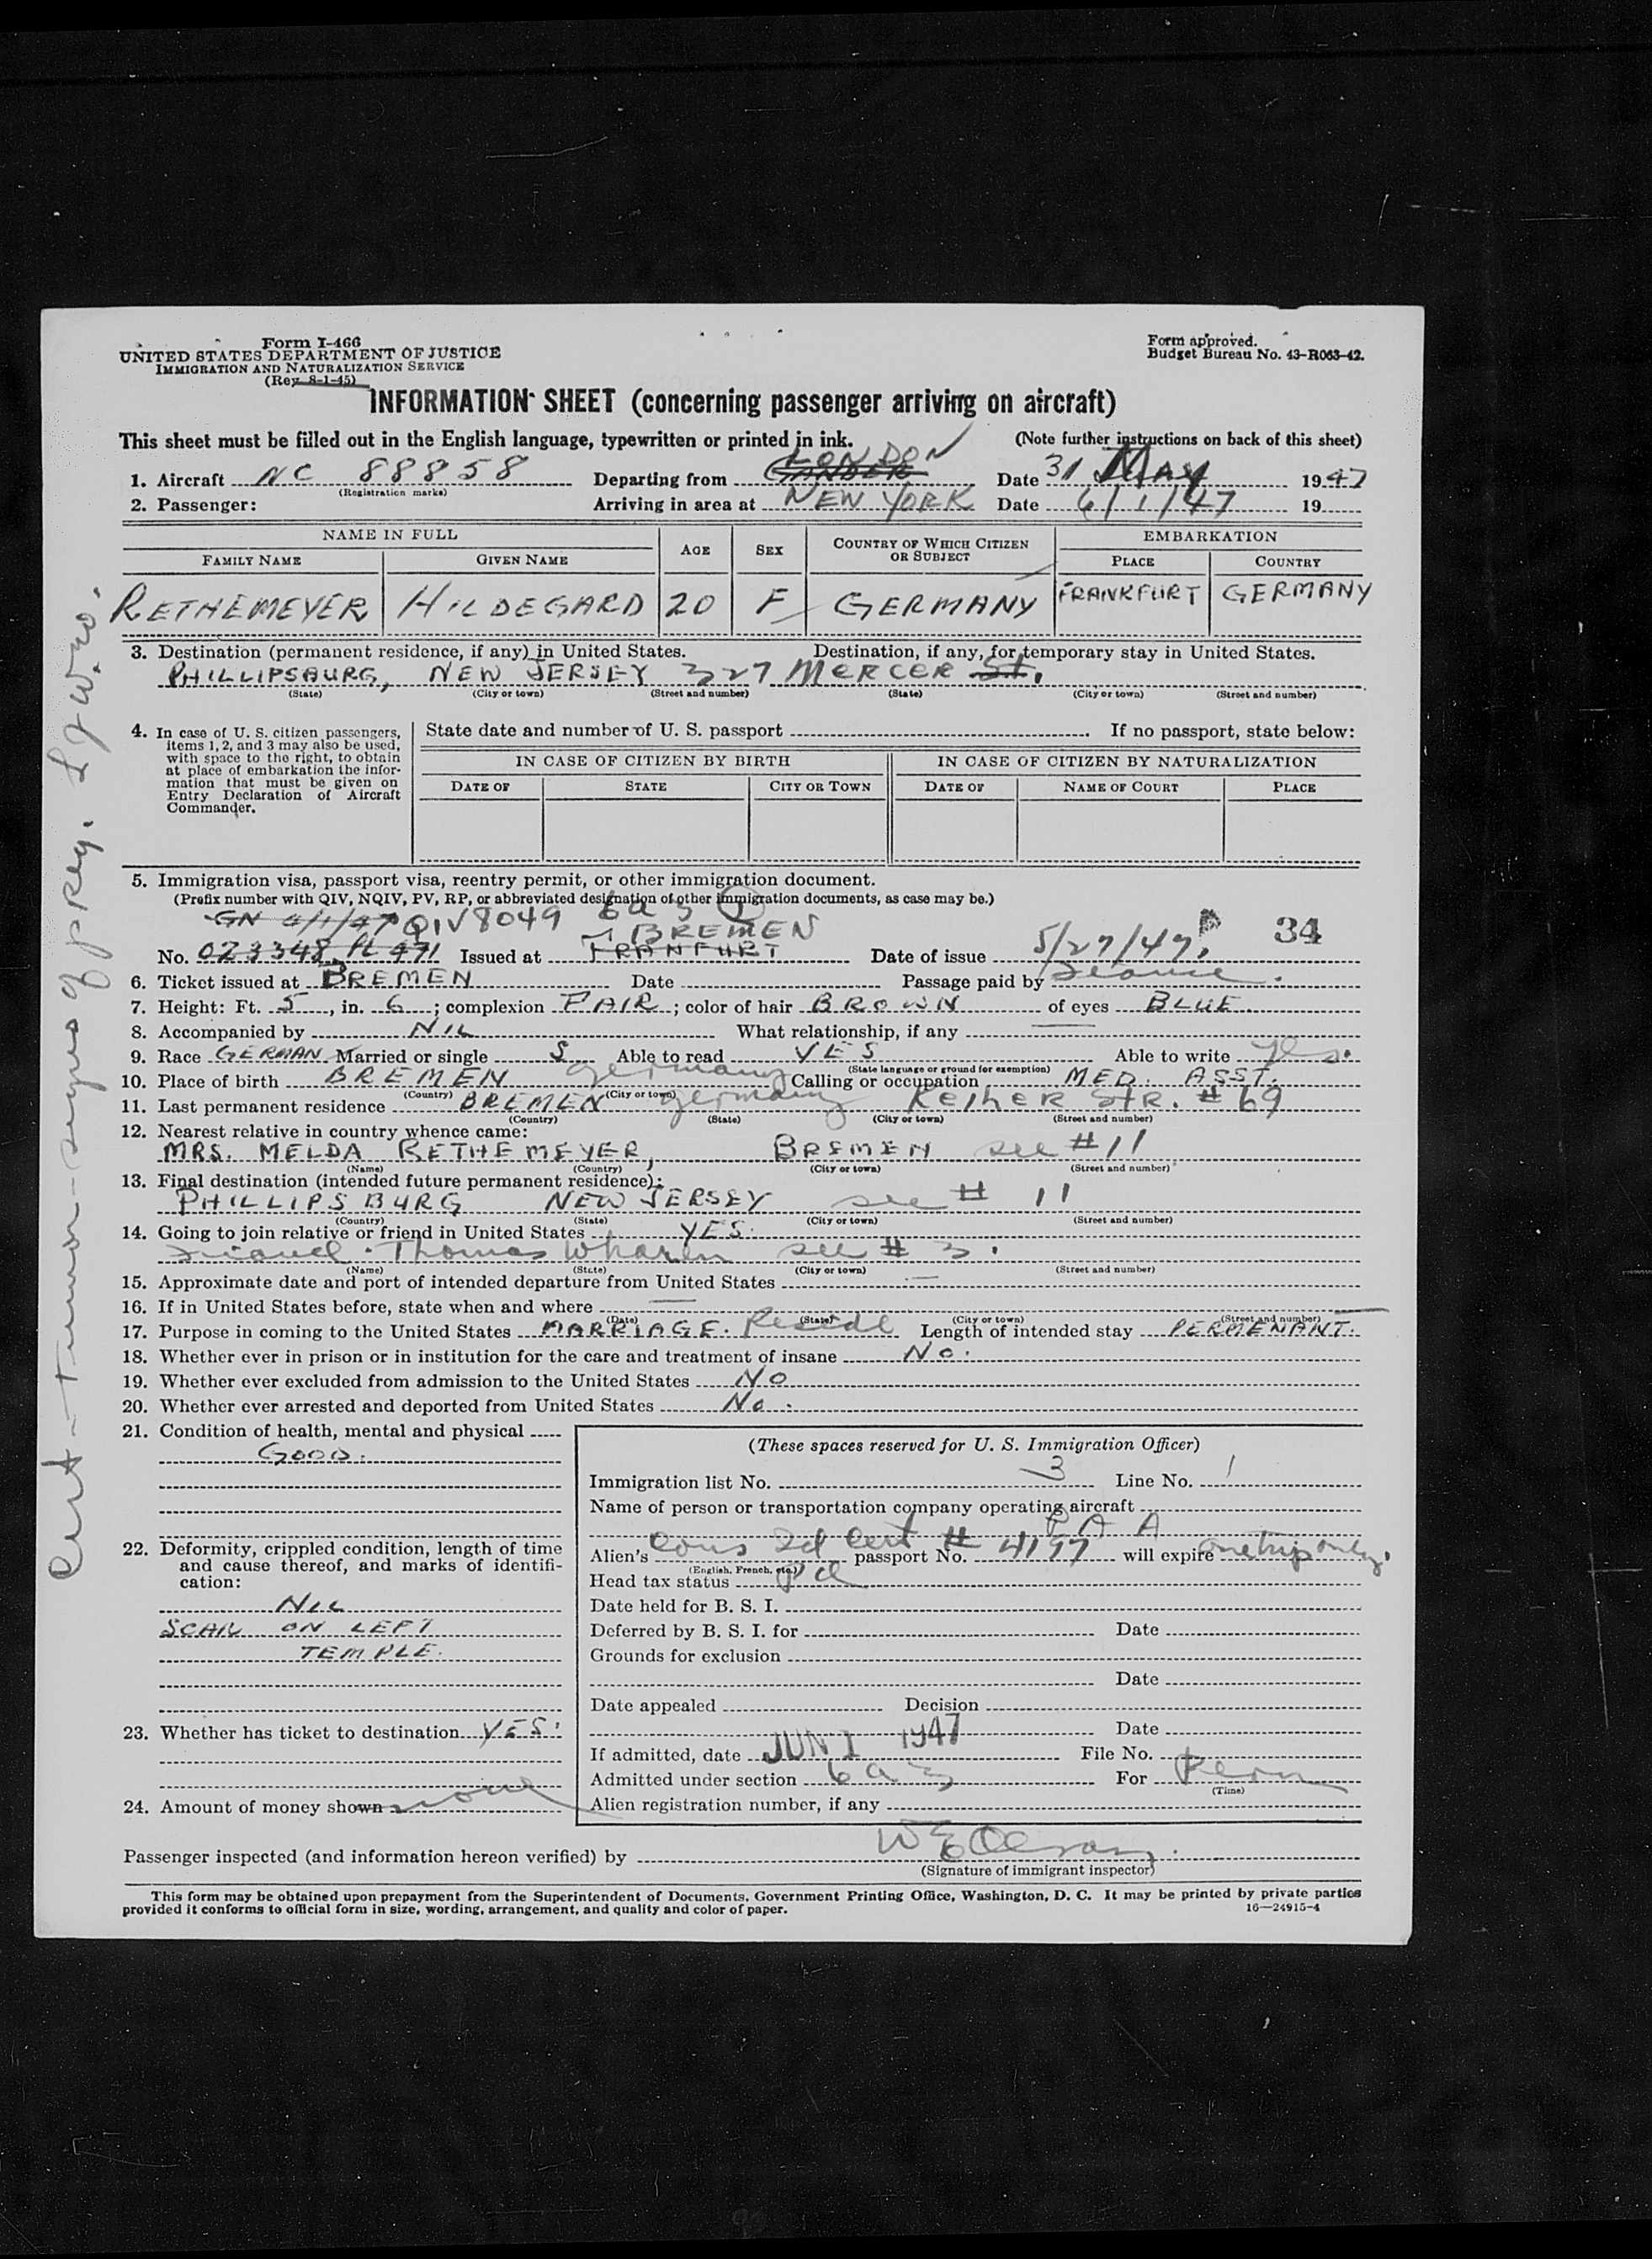 Form I-466
UNITED STATES DEPARTMENT OF JUSTICE
IMMIGRATION AND NATURALIZATION SERVICE
(Rev. 8-1-45)
Form approved.
Budget Bureau No. 43-R063-42.
INFORMATION SHEET (concerning passenger arriving on aircraft)
This sheet must be filled out in the English language, typewritten or printed in ink. (Note further instructions on back of this sheet)
LONDON
1. Aircraft NC 88858 Departing from GANDER Date 31 May 1947
(Registration marks)
2. Passenger: Arriving in area at NEW YORK Date 6/1/47 19
NAME IN FULL AGE SEX COUNTRY OF WHICH CITIZEN OR SUBJECT EMBARKATION
FAMILY NAME GIVEN NAME PLACE COUNTRY
RETHEMEYER HILDEGARD 20 F GERMANY FRANKFURT GERMANY
3. Destination (permanent residence, if any) in United States. Destination, if any, for temporary stay in United States.
PHILLIPSBURG, NEW JERSEY 327 MERCER St.
(State) (City or town) (Street and number) (State) (City or town) (Street and number)
4. In case of U. S. citizen passengers, items 1, 2, and 3 may also be used, with space to the right, to obtain at place of embarkation the information that must be given on Entry Declaration of Aircraft Commander.
State date and number of U. S. passport If no passport, state below:
IN CASE OF CITIZEN BY BIRTH IN CASE OF CITIZEN BY NATURALIZATION
DATE OF STATE CITY OR TOWN DATE OF NAME OF COURT PLACE
5. Immigration visa, passport visa, reentry permit, or other immigration document.
(Prefix number with QIV, NQIV, PV, RP, or abbreviated designation of other immigration documents, as case may be.)
QIV 8049 6a3 BREMEN
No. 023348 PL 471 Issued at FRANFURT Date of issue 5/27/47 34
6. Ticket issued at BREMEN Date Passage paid by
7. Height: Ft. 5, in. 6; complexion FAIR; color of hair BROWN of eyes BLUE
8. Accompanied by NIL What relationship, if any —
9. Race GERMAN Married or single S Able to read YES Able to write yes.
(State language or ground for exemption)
10. Place of birth BREMEN Germany Calling or occupation MED. ASST.
(Country) (City or town)
11. Last permanent residence BREMEN Germany Reiher STR. # 69
(Country) (State) (City or town) (Street and number)
12. Nearest relative in country whence came:
MRS. MELDA RETHEMEYER, BREMEN see #11
(Name) (Country) (City or town) (Street and number)
13. Final destination (intended future permanent residence):
PHILLIPSBURG NEW JERSEY see # 11
(Country) (State) (City or town) (Street and number)
14. Going to join relative or friend in United States YES.
Thomas Wharen see # 3.
(Name) (State) (City or town) (Street and number)
15. Approximate date and port of intended departure from United States —
16. If in United States before, state when and where —
(Date) (State) (City or town) (Street and number)
17. Purpose in coming to the United States MARRIAGE. Reside Length of intended stay PERMENANT.
18. Whether ever in prison or in institution for the care and treatment of insane No.
19. Whether ever excluded from admission to the United States NO
20. Whether ever arrested and deported from United States No.
21. Condition of health, mental and physical
GOOD.
22. Deformity, crippled condition, length of time and cause thereof, and marks of identification:
NIL
SCAR ON LEFT
TEMPLE.
23. Whether has ticket to destination YES.
24. Amount of money shown none
(These spaces reserved for U. S. Immigration Officer)
Immigration list No. 3 Line No. 1
Name of person or transportation company operating aircraft
P A A
Alien's Cons Id Cert # passport No. 4197 will expire one trip only.
(English, French, etc.)
Head tax status pd
Date held for B. S. I.
Deferred by B. S. I. for Date
Grounds for exclusion
Date
Date appealed Decision
Date
If admitted, date JUN 1 1947 File No.
Admitted under section 6a3 For Perm
(Time)
Alien registration number, if any
Passenger inspected (and information hereon verified) by W E Olson
(Signature of immigrant inspector)
This form may be obtained upon prepayment from the Superintendent of Documents, Government Printing Office, Washington, D. C. It may be printed by private parties
provided it conforms to official form in size, wording, arrangement, and quality and color of paper. 16—24915-4